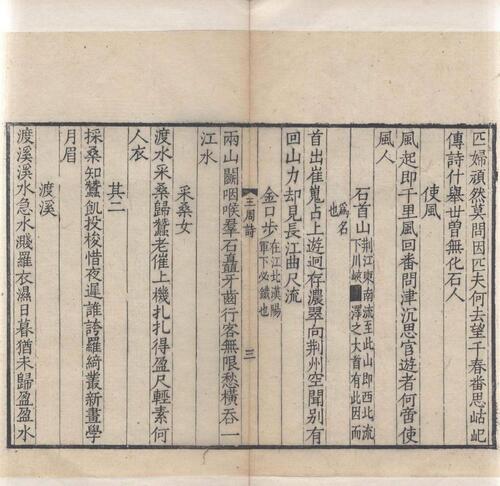 匹婦頑然莫問因匹夫何去望千春番思岵屺
傳詩什舉世曾無化石人
使風
風起即千里風回番問津沉思官遊者何啻使
風人
石首山荆江東南流至此山即西北流下川峽澤之大首有此因而爲名也
首出崔嵬占上遊迥存濃翠向荆州空聞别有
回山力却見長江曲尺流
金口步在江北漢陽軍下必鐵也
王周詩
三
兩山鬬咽喉羣石矗牙齒行客無限愁橫吞一
江水
采桑女
渡水采桑歸蠶老催上機扎扎得盈尺輕素何
人衣
其二
採桑知蠶飢投梭惜夜遲誰誇羅綺叢新畫學
月眉
渡溪
渡溪溪水急水濺羅衣濕日暮猶未歸盈盈水